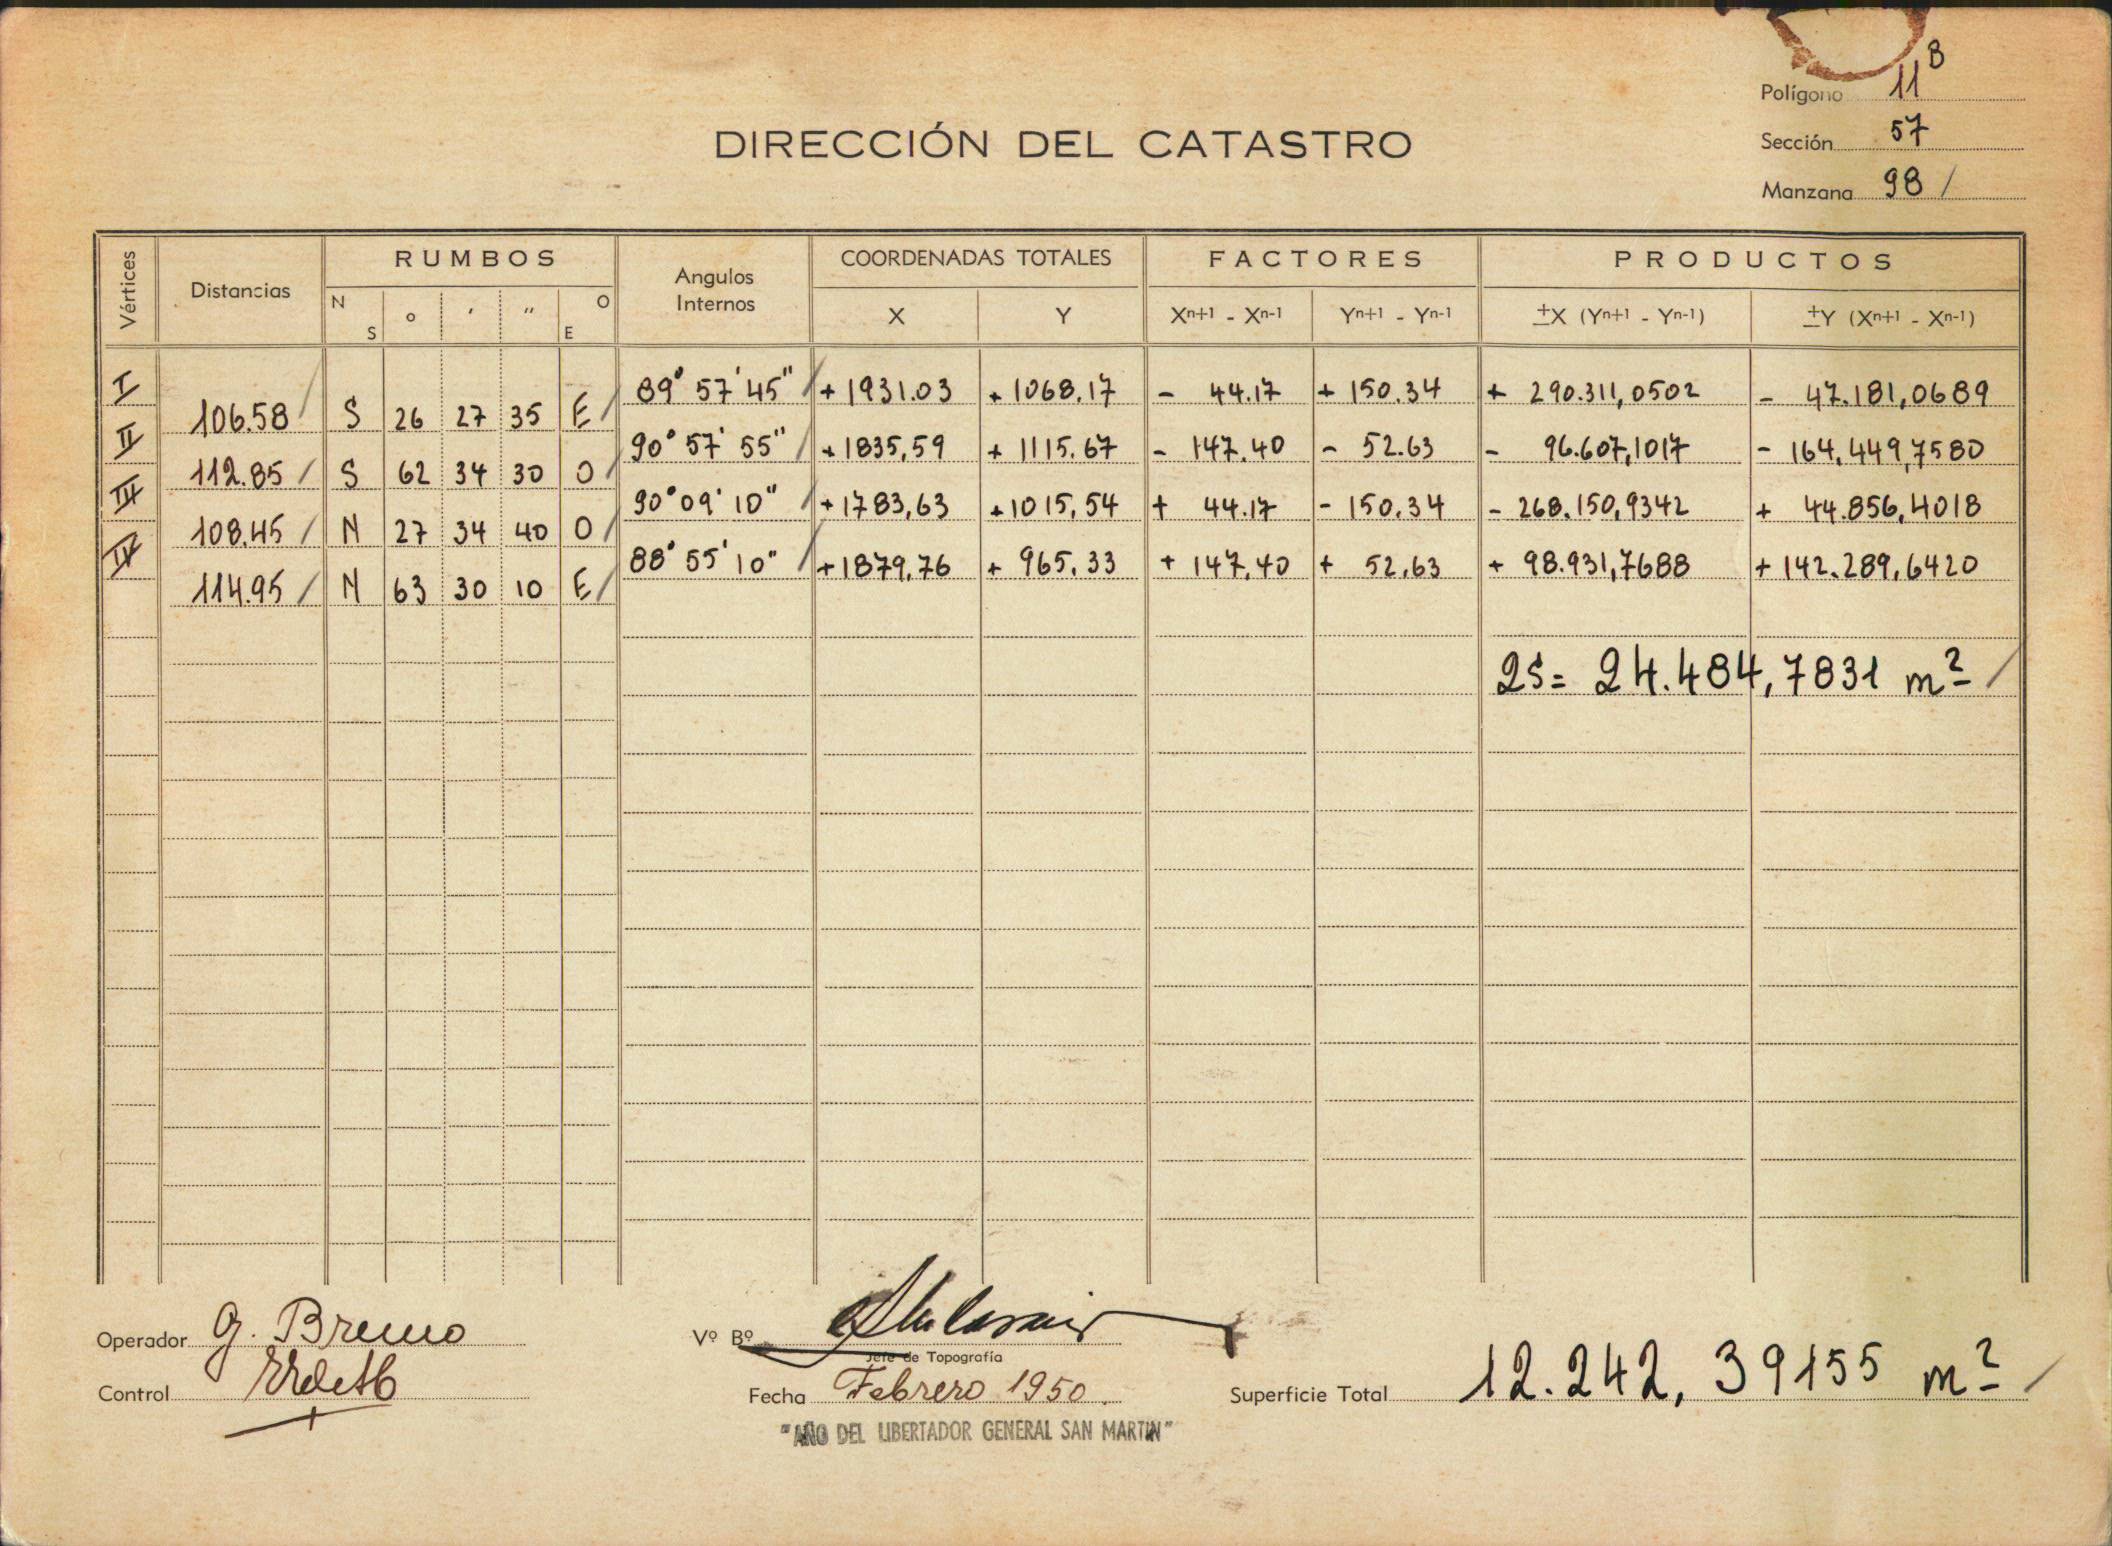 Polígono 11 B
DIRECCIÓN DEL CATASTRO
Sección 57
Manzana 98 /
Vértices Distancias RUMBOS Angulos Internos COORDENADAS TOTALES FACTORES PRODUCTOS
N S ° ′ ″ O E X Y Xn+1 - Xn-1 Yn+1 - Yn-1 ±X (Yn+1 - Yn-1) ±Y (Xn+1 - Xn-1)
I 89° 57' 45" / + 1931.03 + 1068.17 - 44.17 + 150.34 + 290.311,0502 - 47.181,0689
106.58 / S 26 27 35 E /
II 90° 57' 55" / + 1835,59 + 1115.67 - 147.40 - 52.63 - 96.607,1017 - 164.449,7580
112.85 / S 62 34 30 O /
III 90° 09' 10" / + 1783,63 + 1015,54 + 44.17 - 150.34 - 268.150,9342 + 44.856,4018
108.45 / N 27 34 40 O /
IV 88° 55' 10" / + 1879,76 + 965.33 + 147,40 + 52,63 + 98.931,7688 + 142.289,6420
114.95 / N 63 30 10 E /
2S = 24.484,7831 m2 /
Operador G. Bruno Vº Bº
Jefe de Topografía
Control Fecha Febrero 1950. Superficie Total 12.242,39155 m2 /
"AÑO DEL LIBERTADOR GENERAL SAN MARTIN"